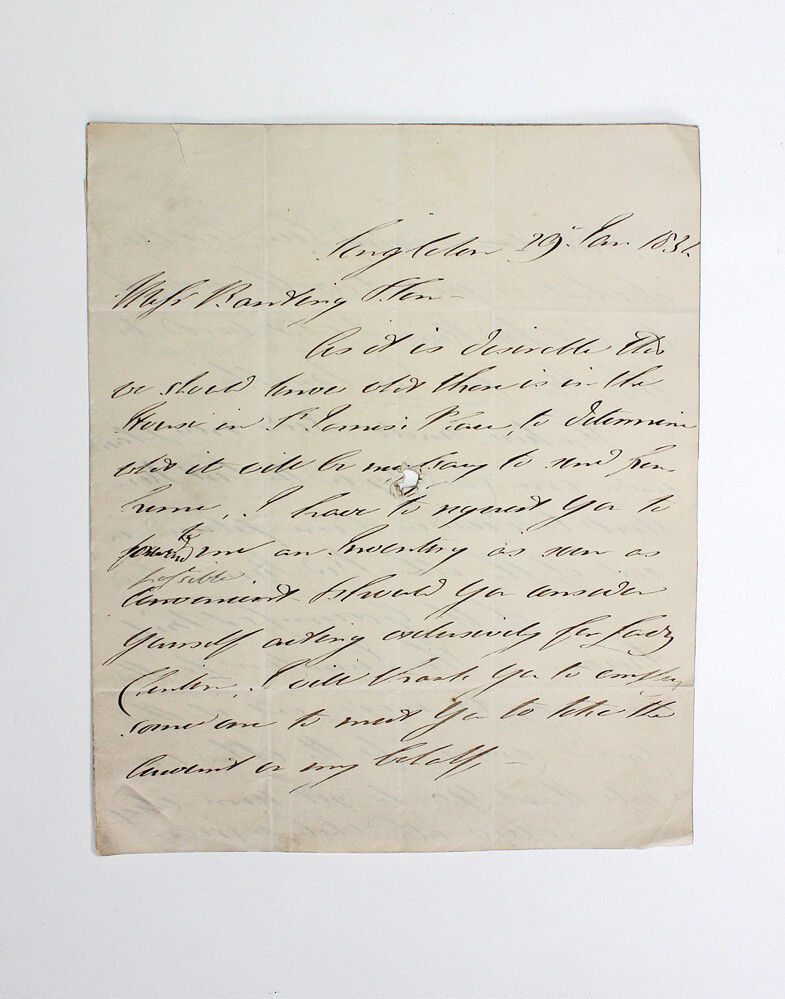 Singleton 29th Jan 183
Messrs Banting & Son —
As it is desirable that
we should know what there is in the
House in St James's Place, to determine
what it will be necessary to send from
home, I have to request you to
forward to me an Inventory as soon as
possible
convenient & should you consider
yourself acting exclusively for Lady
Clinton, I will thank you to employ
some one to meet you to take the
amount on my behalf, —